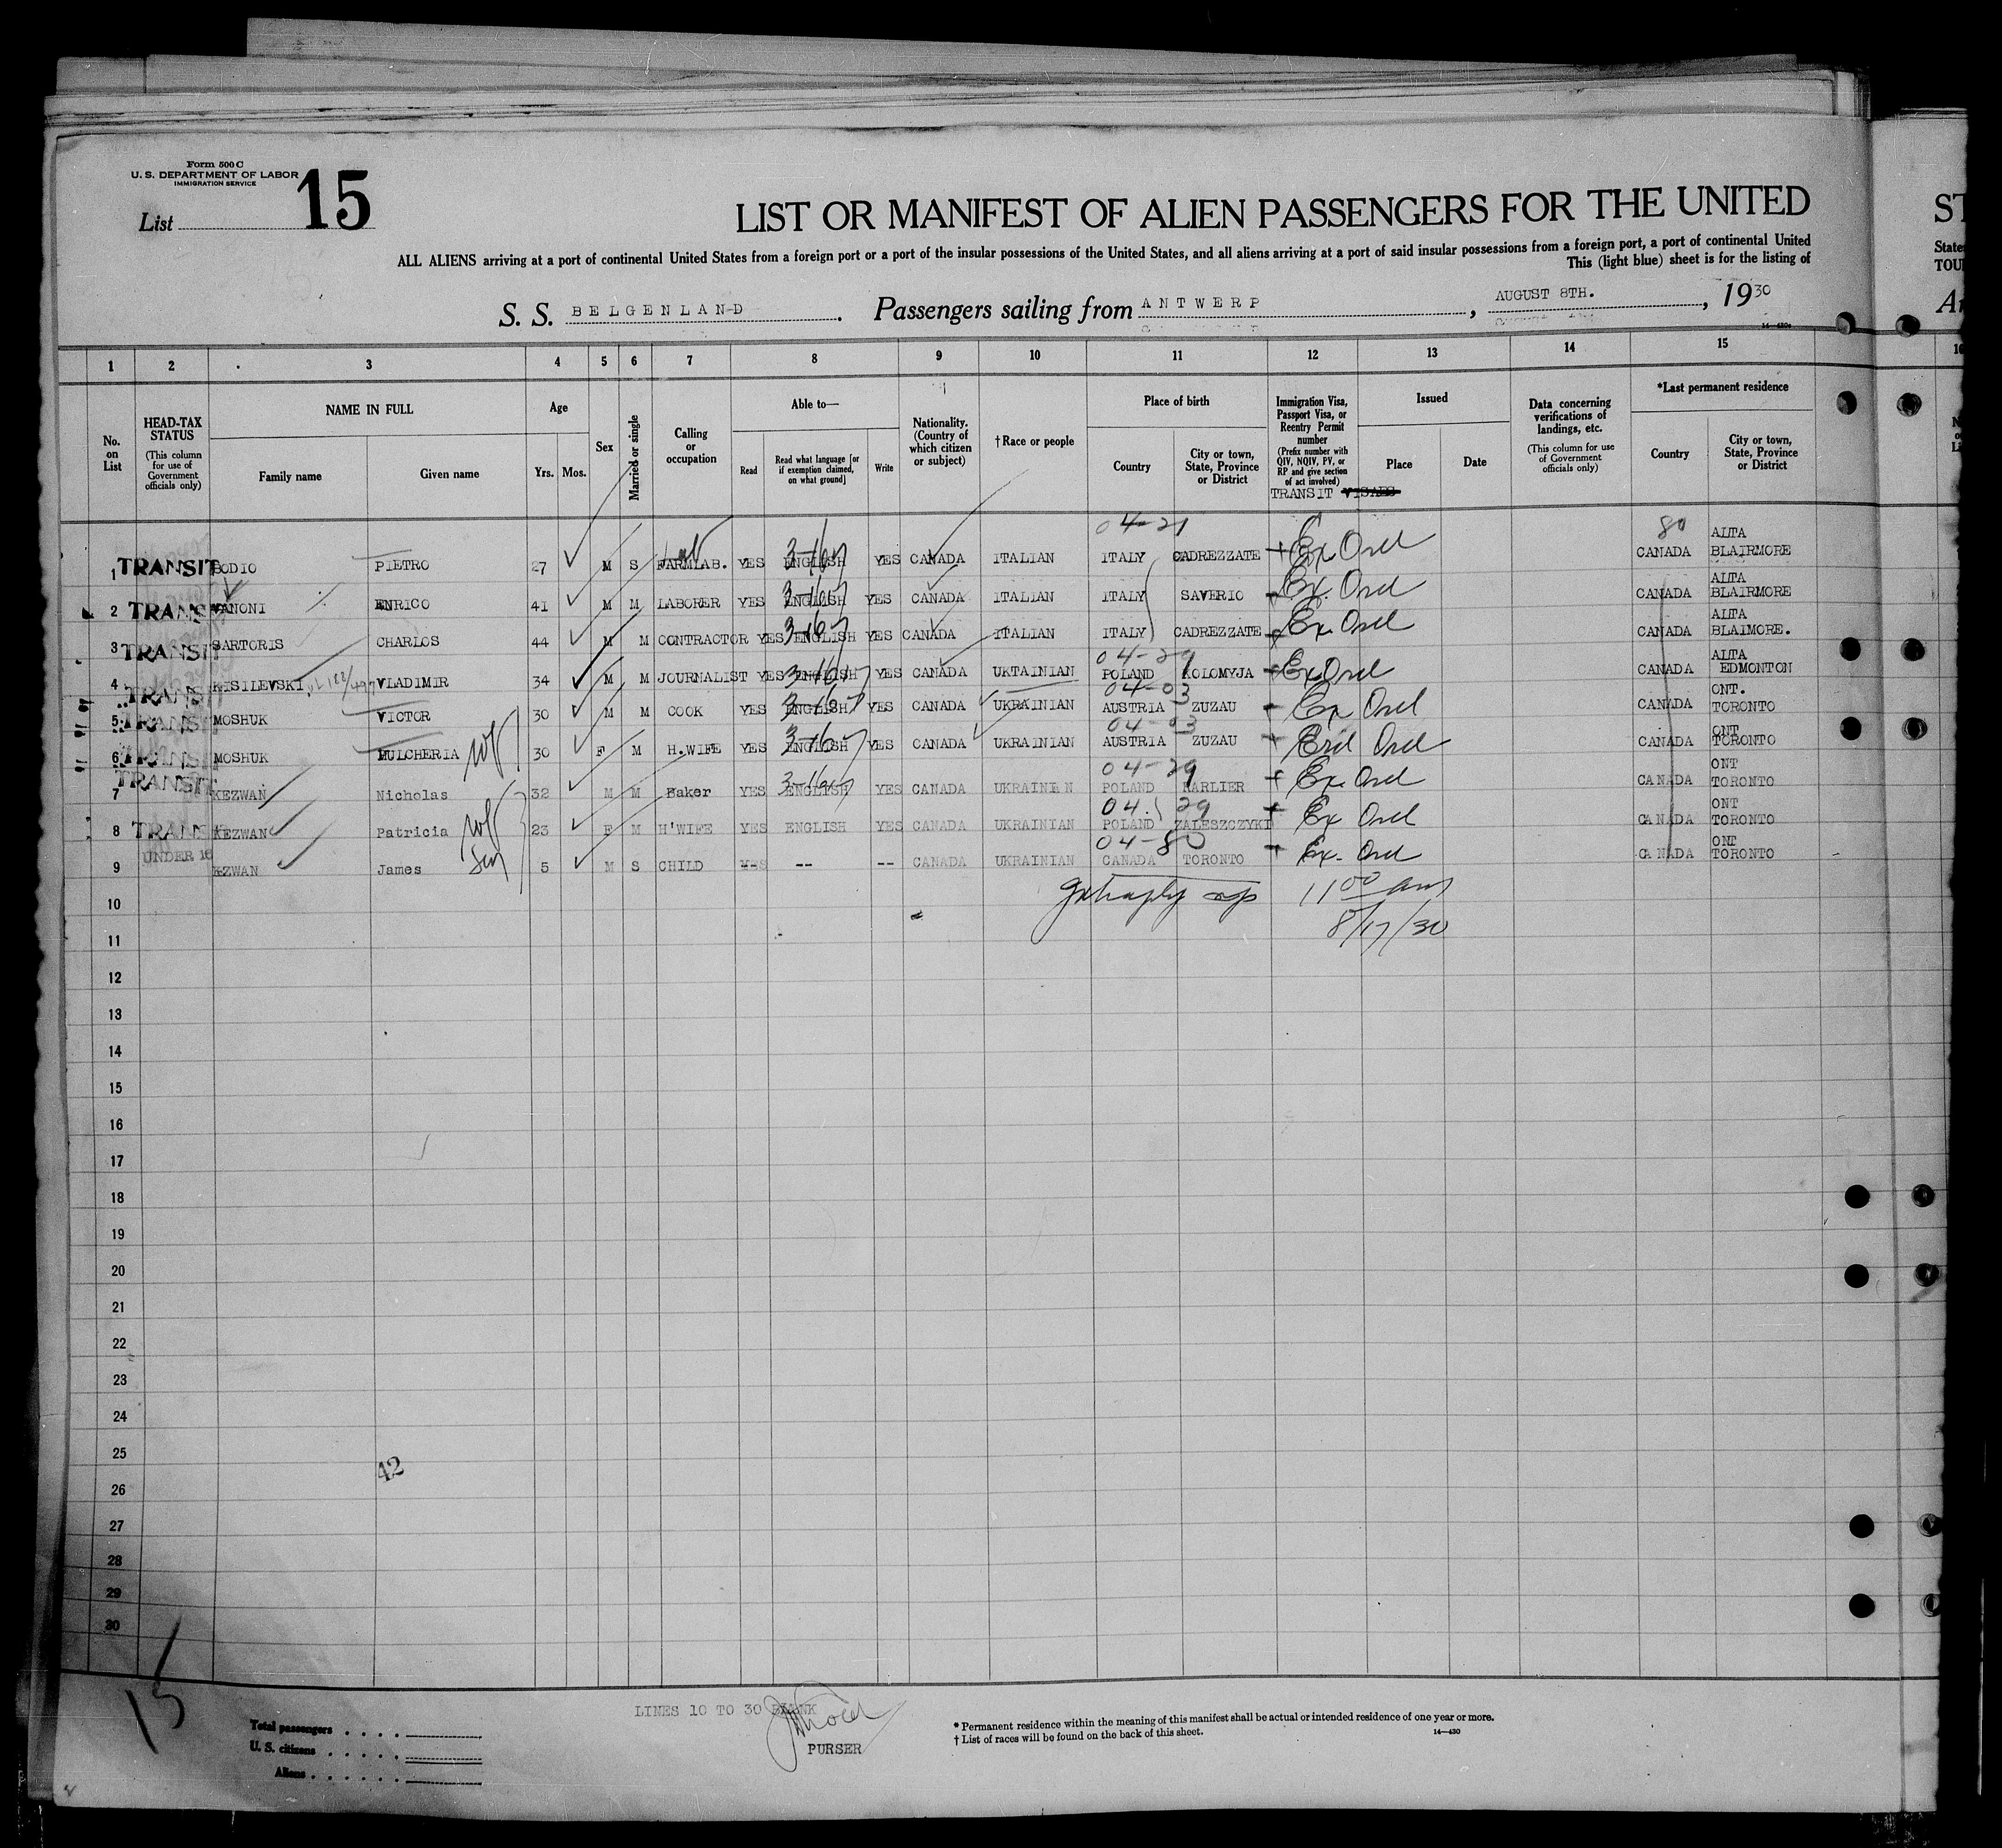 Form 500 C
U. S. DEPARTMENT OF LABOR
IMMIGRATION SERVICE
List 15
LIST OR MANIFEST OF ALIEN PASSENGERS FOR THE UNITED
ST
ALL ALIENS arriving at a port of continental United States from a foreign port or a port of the insular possessions of the United States, and all aliens arriving at a port of said insular possessions from a foreign port, a port of continental United
This (light blue) sheet is for the listing of
S. S. BELGENLAND. Passengers sailing from ANTWERP, AUGUST 8TH., 1930
14—430
1 2 3 4 5 6 7 8 9 10 11 12 13 14 15
No. on List
HEAD-TAX STATUS (This column for use of Government officials only)
NAME IN FULL
Family name
Given name
Age
Yrs. Mos.
Sex
Married or single
Calling or occupation
Able to—
Read
Read what language [or if exemption claimed, on what ground]
Write
Nationality. (Country of which citizen or subject)
†Race or people
Place of birth
Country
City or town, State, Province or District
Immigration Visa, Passport Visa, or Reentry Permit number (Prefix number with QIV, NQIV, PV, or RP and give section of act involved)
TRANSIT VISAES
Issued
Place
Date
Data concerning verifications of landings, etc. (This column for use of Government officials only)
*Last permanent residence
Country
City or town, State, Province or District
04-21 80 ALTA
1 TRANSIT BODIO PIETRO 27 M S FARMLAB. YES ENGLISH YES CANADA ITALIAN ITALY CADREZZATE CANADA BLAIRMORE
ALTA
2 TRANS VANONI ENRICO 41 M M LABORER YES ENGLISH YES CANADA ITALIAN ITALY SAVERIO CANADA BLAIRMORE
ALTA
3 TRANSIT SARTORIS CHARLOS 44 M M CONTRACTOR YES ENGLISH YES CANADA ITALIAN ITALY CADREZZATE CANADA BLAIMORE.
04-29 ALTA
4 TRANSIT KISILEVSKI VLADIMIR 34 M M JOURNALIST YES ENGLISH YES CANADA UKTAINIAN POLAND KOLOMYJA CANADA EDMONTON
04-03 ONT.
5 TRANSIT MOSHUK VICTOR 30 M M COOK YES ENGLISH YES CANADA UKRAINIAN AUSTRIA ZUZAU CANADA TORONTO
04-03 ONT
6 TRANSIT MOSHUK PULCHERIA wf 30 F M H.WIFE YES ENGLISH YES CANADA UKRAINIAN AUSTRIA ZUZAU CANADA TORONTO
04-29 ONT
7 TRANSIT KEZWAN Nicholas 32 M M Baker YES ENGLISH YES CANADA UKRAINIAN POLAND KARLIER CANADA TORONTO
04 29 ONT
8 TRANS KEZWAN Patricia wf 23 F M H'WIFE YES ENGLISH YES CANADA UKRAINIAN POLAND ZALESZCZYKI CANADA TORONTO
04-80 ONT
9 UNDER 16 KEZWAN James son 5 M S CHILD YES -- -- CANADA UKRAINIAN CANADA TORONTO CANADA TORONTO
10 11 00 am
11 8/17/30
12
13
14
15
16
17
18
19
20
21
22
23
24
25
42
26
27
28
29
30
15
LINES 10 TO 30 BLANK
PURSER
Total passengers
U. S. citizens
Aliens
* Permanent residence within the meaning of this manifest shall be actual or intended residence of one year or more.
† List of races will be found on the back of this sheet.
14—430